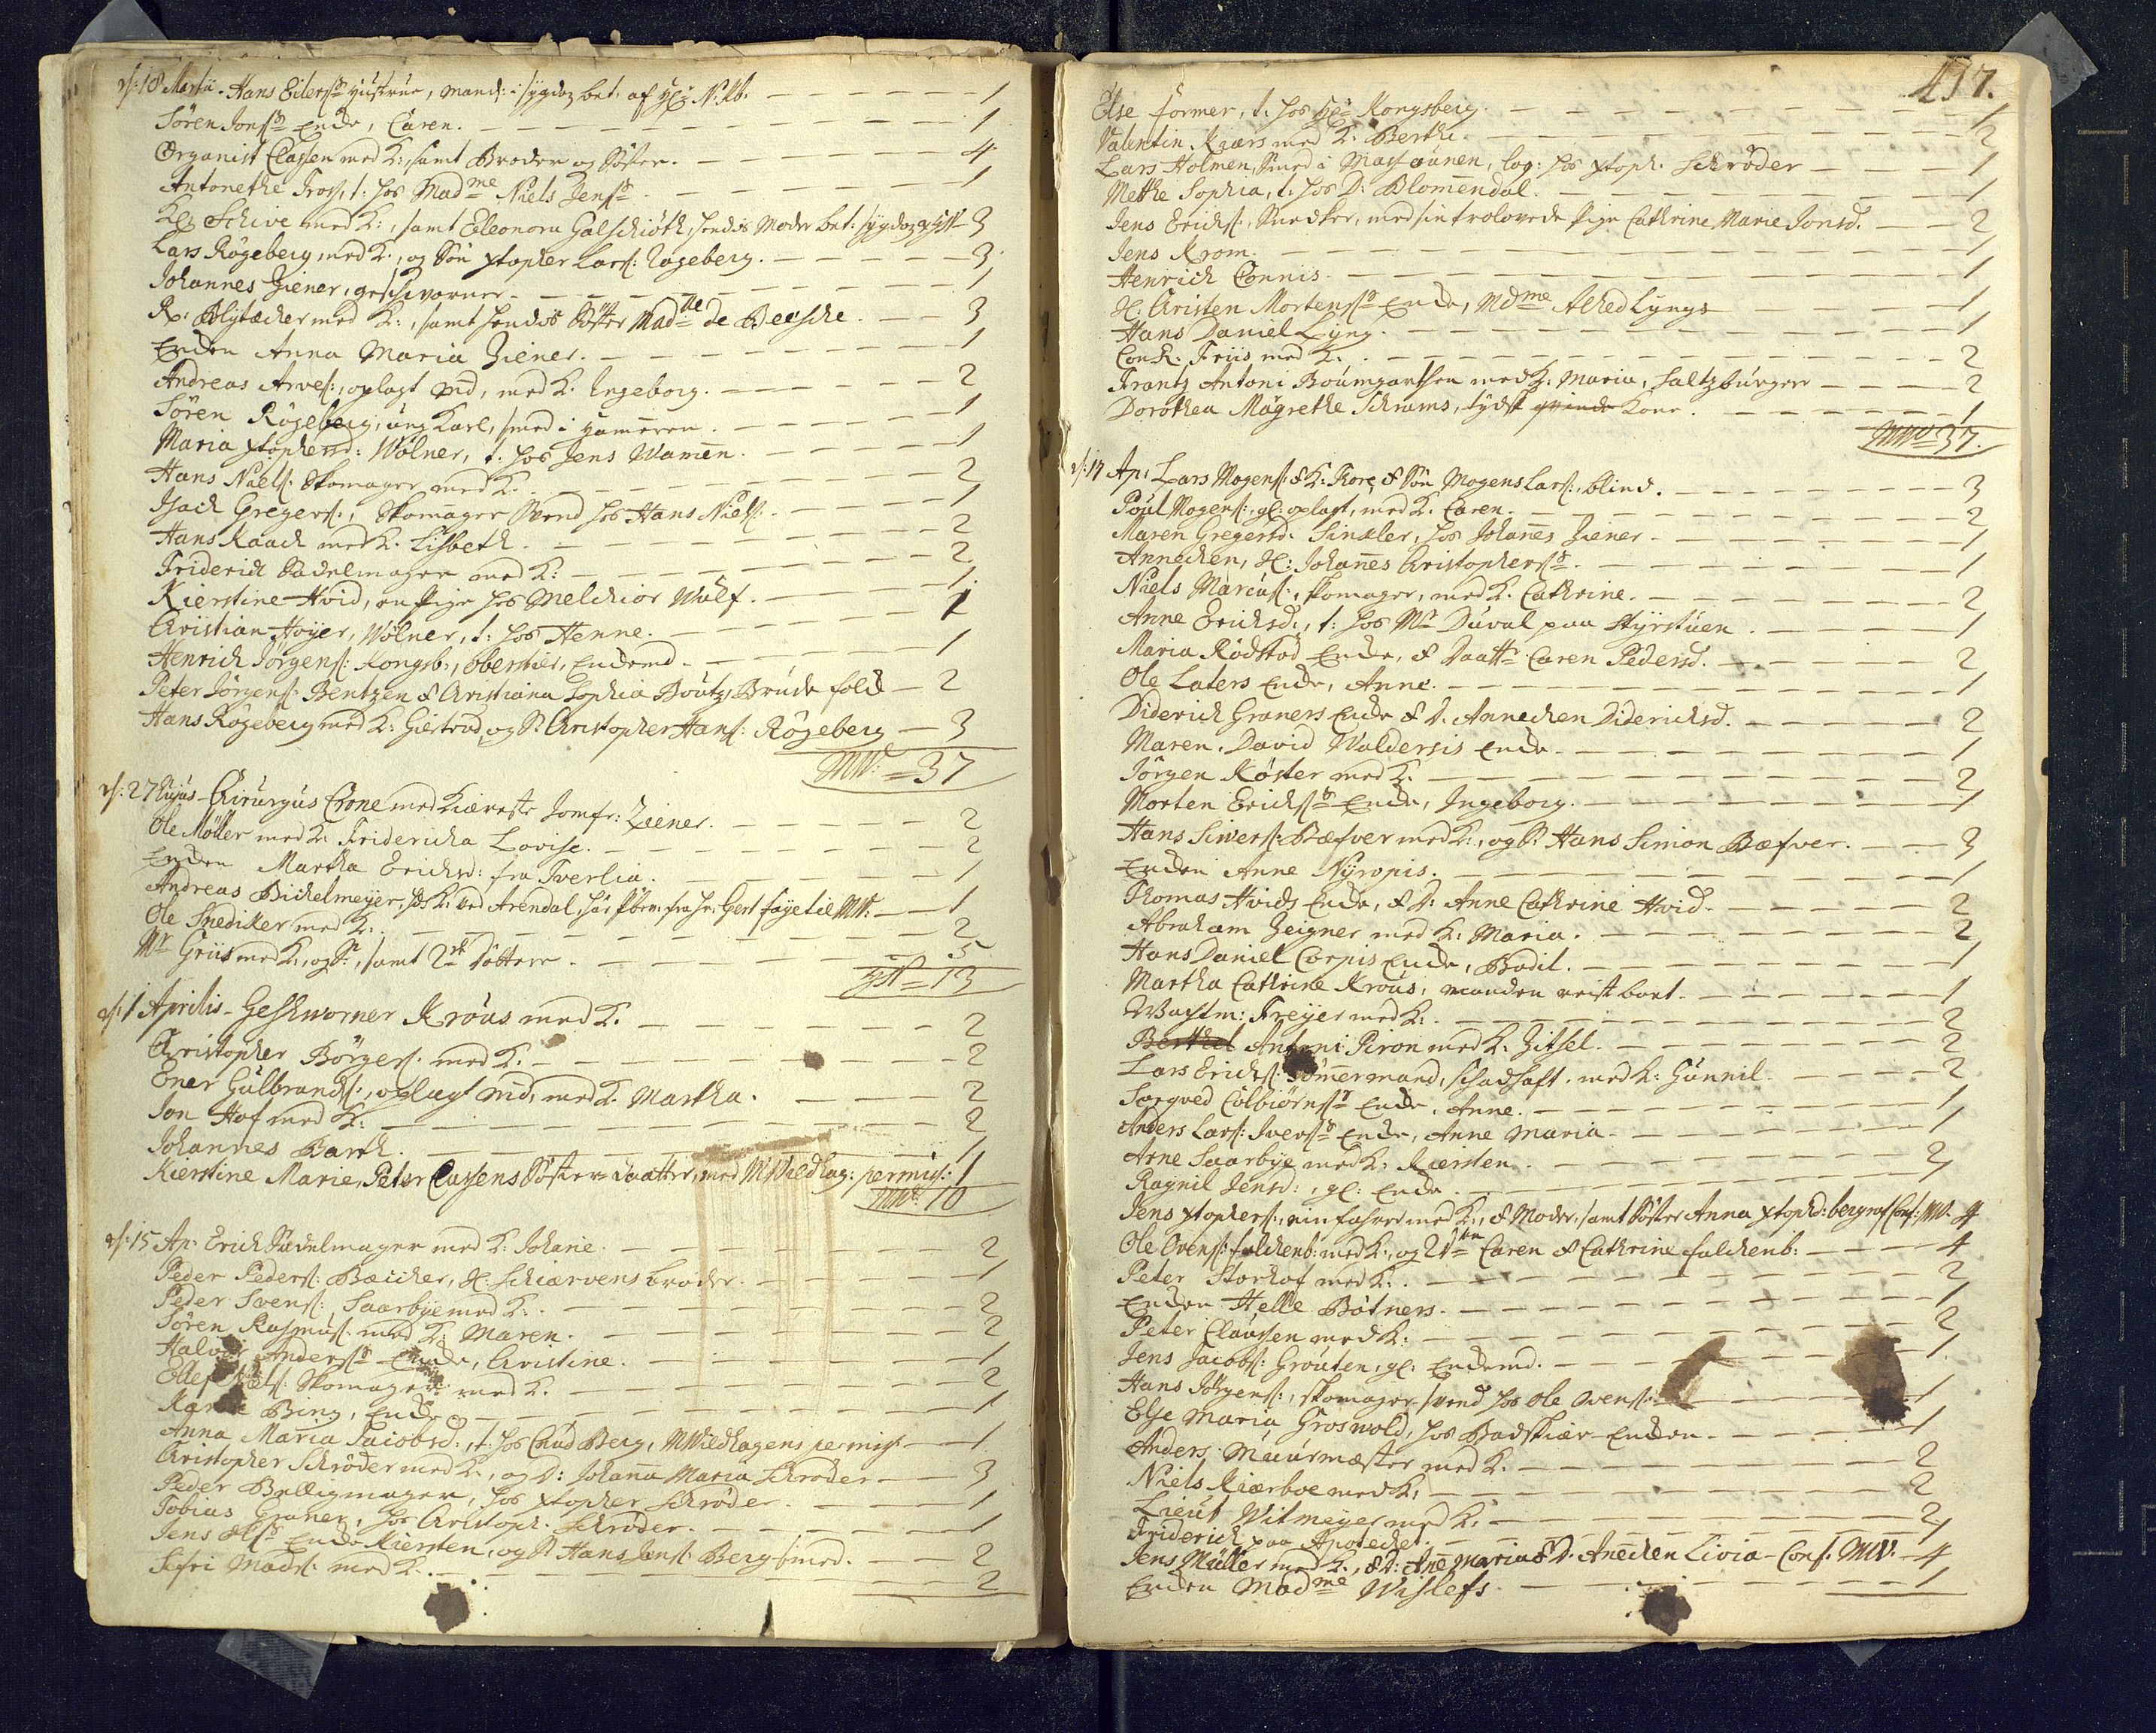 d: 18 Martii. Hans Eilerss. Hustrue, mand: i sygdoz bet. af Hr: N: Kb. 1
Sören Jonss. Encke, Caren. 1
Organist Classen med K:, samt Broder og Söster. 4
Antonethe Fross, t. hos Madme Niels Jenss. 1
Schive med K:, samt Eleonora Galschiöth, hendis Moder bet: sygdoz 3
Lars Rögeberg med K., og Sön xstopher Larss: Rögeberg. 3
Johannes Ziener, geschworner. 1
R. Blytæcker med K:, samt hendis Söster Madlle de Besche. 3
Encken Anna Maria Ziener. 1
Andreas Arvess:, oplagt md, med K. Ingeborg. 2
Sören Rögeberg, ung Karl, smed i Hammeren. 1
Maria xstophersd: Wölner, t. hos Jens Wamen. 1
Hans Nielss: Skomager med K. 2
Isach Gregerss:, Skomager Svend hos Hans Nielss: 1
Hans Raach med K. Lisbeth. 2
Friderich Sadelmager med K: 2
Kierstine Hvid, en Pige hos Melchior Wulf. 1
Christian Hoyer, Wölner, t: hos Henne. 1
Henrich Jörgens: Kongsb:, oberstier, Enckemd. 1
Peter Jörgens: Bentzen & Christiana Sophia Boutz, Brude folck 2
Hans Rögeberg med K: Giertrud, og S. Christopher Hanss: Rögeberg 3
MW: = 37
d: 27 hujus Chirurgus Crone med Kiæreste Jomfr: Ziener. 2
Ole Möller med K. Fridericha Lovise. 2
Encken Martha Erichsd: fra Tverlia. 1
Andreas Bichelmeyer, hos K. ved Arendal, har Perm: fra Hr: Gert faye til MW. 1
Ole Snediker med K: 2
Mr Griis med K:, og S., samt 2de Döttere. 5
= 13
d: 1 Aprilis Geschworner Krous med K. 2
Christopher Börgers. med K. 2
Ener Gulbrands:, oplagt md, med K. Martha. 2
Jon Hof med K: 2
Johannes Barth. 1
Kierstine Marie, Peter Classens Söster daatter, med Mr Wiedhag: permiss: 1
MW: 10
d: 15 Ap: Erich Sadelmager med K: Johane. 2
Peder Peders: Bæcker, H: Schiærvens broder. 1
Peder Svens: Saarbye med K: 2
Sören Rasmuss: med K: Maren. 2
Halvor Anderss. Encke, Christine. 1
Ellef Skomager med K. 2
Karen Bing, Encke 1
Anna Maria Jacobsd:, t. hos Cnud Berg, MWiedhagens permiss. 1
Christopher Schröder med K., og D: Johanna Maria Schröder 3
Peder Bælligmager, hos xstopher Schröder. 1
Tobias Graner, hos Christoph. Schröder. 1
Jens Encke Kiersten, og S. Hans Jens: Berg smed. 2
Sifri Mads: med K. 2
417.
Else Former, t. hos Hr: Kongsberg. 1
Valentin Kiærs med K. Berthe. 2
Lars Holmen, Smed i Masovnen, log: hos xstoph. Schröder 1
Mette Sophia, t: hos D: Blomendal. 1
Jens Erichs:, Snedker, med sin trolovede Pige Cathrine Marie Jonsd. 2
Jens Krom. 1
Henrich Connis. 1
H: Christen Mortenss. Encke, Mdme Alhed Lyngs 1
Hans Daniel Lyng. 1
Con R: Friis med K. 2
Frantz Antoni Boumgarthen med K: Maria, Saltzburgere 2
Dorothea Magrethe Schrams, tydsk qvinde Kone. 1
MW: 37.
d: 17 Ap: Lars Mogens: & K: Thore, & Sön Mogens Lars:, blind. 3
Poul Mogens:, gl: oplagt, med K. Caren. 2
Maren Gregersd. Sinkler, hos Johanes Ziener. 1
Annechen, H: Johanes Christopherss. 1
Niels Marcus:, Skomager, med K. Cathrine. 2
Anne Erichsd:, t: hos Mr Duval paa Styrstuen. 1
Maria Rödstod Encke, & Daattr Caren Pedersd. 2
Ole Laters Encke, Anne. 1
Diderich Graners Encke & D. Annechen Diderichsd. 2
Maren, David Woldersis Encke. 1
Jörgen Köster med K. 2
Morten Erichss. Encke, Ingeborg. 1
Hans Sivers: Bæfver med K:, og S. Hans Simon Bæfver. 3
Encken Anne Nyropis. 1
Thomas Hvids Encke, & D: Anne Cathrine Hvid. 2
Abraham Zeigner med K: Maria. 2
Hans Daniel Corpis Encke, Bodil. 1
Martha Cathrine Krous, manden reist bort. 1
Wachtm: Freyer med K: 2
Berthel Antoni Piron med K. Zitsel. 2
Lars Erichs: Tömmermand, schadhaft, med K: Gunnil. 2
Torgved Colbiörnss. Encke, Anne. 1
Anders Lars: Iverss. Encke, Anne Maria. 1
Arne Saarbye med K: Kiersten. 2
Ragnil Jensd:, gl: Encke. 1
Jens xstophers:, einfahrer med K:, & Moder, samt Söster Anna xstophd: 4
Ole Ovens: falckenb: med K:, og 2 D. Caren & Cathrine falckenb: 4
Peter Storhof med K. 2
Encken Helle Bötners. 1
Peter Claussen med K: 2
Jens Jacobs: Grouten, gl: Enckemd. 1
Hans Jörgens:, Skomager svend hos Ole Ovens: 1
Else Maria Groswold, hos Badskiær Encken. 1
Anders Muurmæster med K. 2
Niels Kiærboe med K: 2
Lieut Witmeyer med K: 2
Friderich paa Apothecket. 1
Jens Müller med K., & D: Ane Maria & D. Anechen Livia. Conf: MW. 4
Encken Madme Wislefs. 1